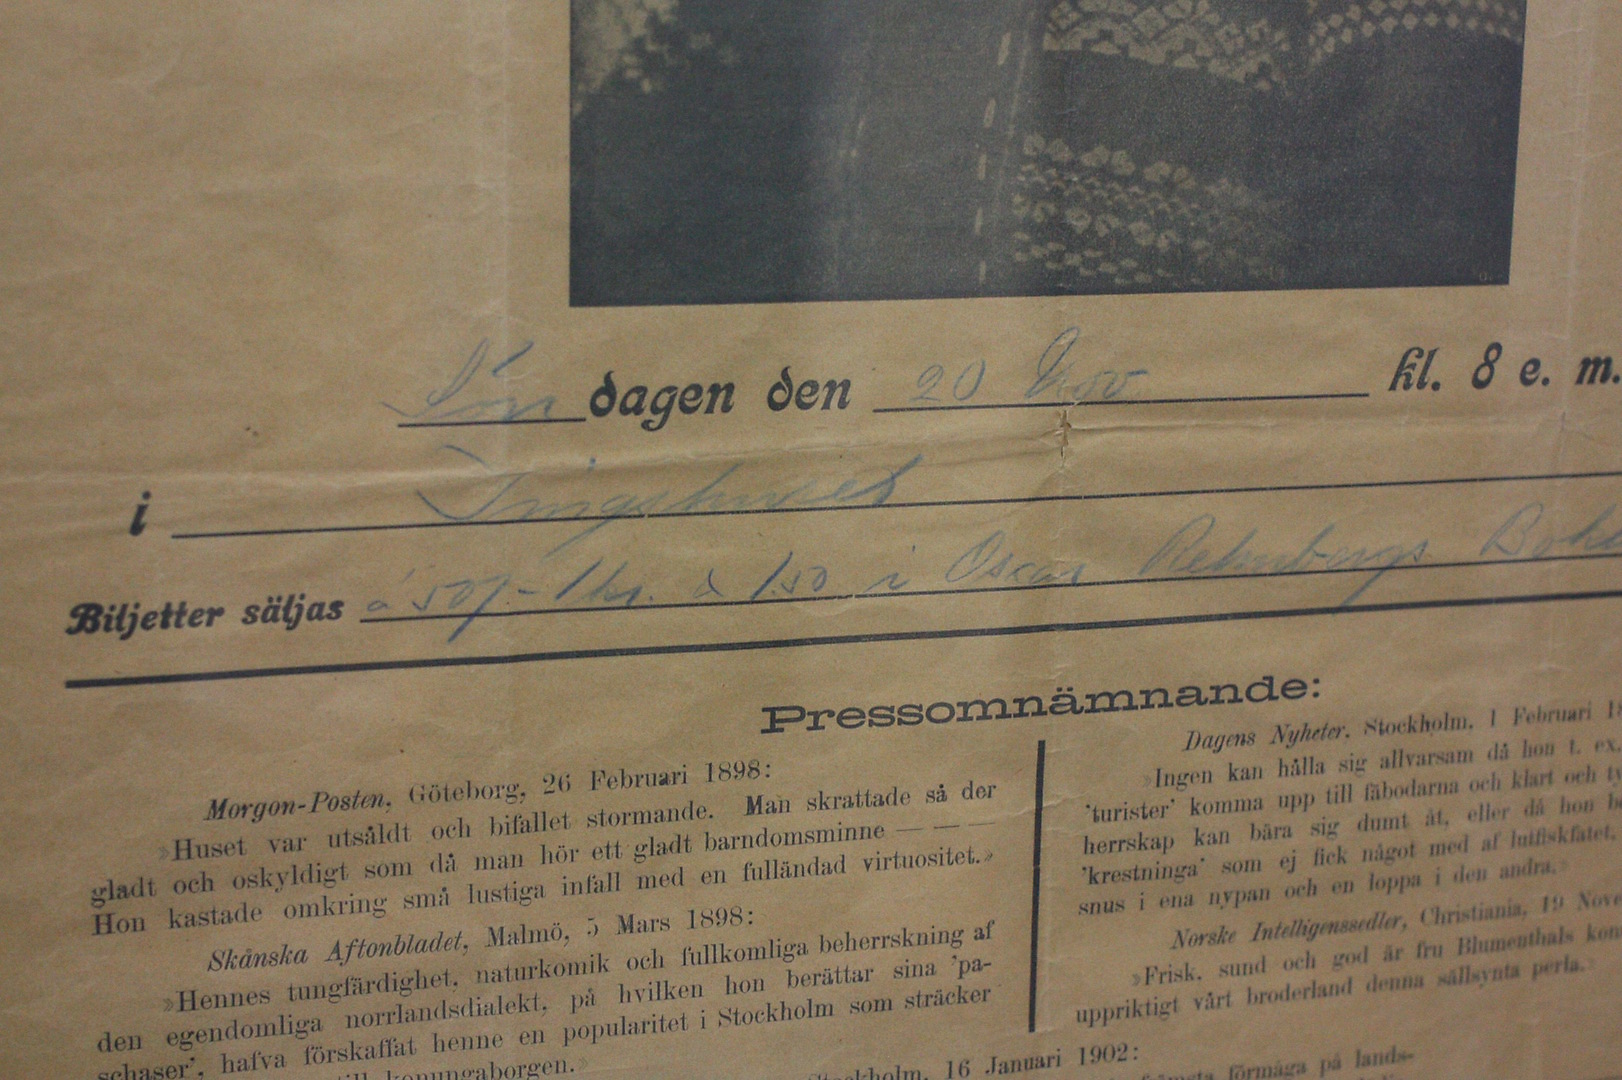 Sön dagen den 20 Nov kl. 8 e. m.
i Tingshuset
Biljetter säljas à 50 - 1 kr. & 1.50 i Oscar
Pressomnämnande:
Morgon-Posten, Göteborg, 26 Februari 1898:
»Huset var utsåldt och bifallet stormande. Man skrattade så der
gladt och oskyldigt som då man hör ett gladt barndomsminne — — —
Hon kastade omkring små lustiga infall med en fulländad virtuositet.»
Skånska Aftonbladet, Malmö, 5 Mars 1898:
»Hennes tungfärdighet, naturkomik och fullkomliga beherrskning af
den egendomliga norrlandsdialekt, på hvilken hon berättar sina 'pa-
schaser', hafva förskaffat henne en popularitet i Stockholm som sträcker
till konungaborgen.»
Dagens Nyheter, Stockholm, 1 Februari
»Ingen kan hålla sig allvarsam då hon t. ex.
'turister' komma upp till fäbodarna och klart och
herrskap kan bära sig dumt åt, eller då hon
'krestninga' som ej fick något med af lutfiskfatet,
snus i ena nypan och en loppa i den andra.»
Norske Intelligenssedler, Christiania, 19
»Frisk, sund och god är fru Blumenthals
uppriktigt vårt broderland denna sällsynta perla.»
16 Januari 1902:
förmåga på lands-